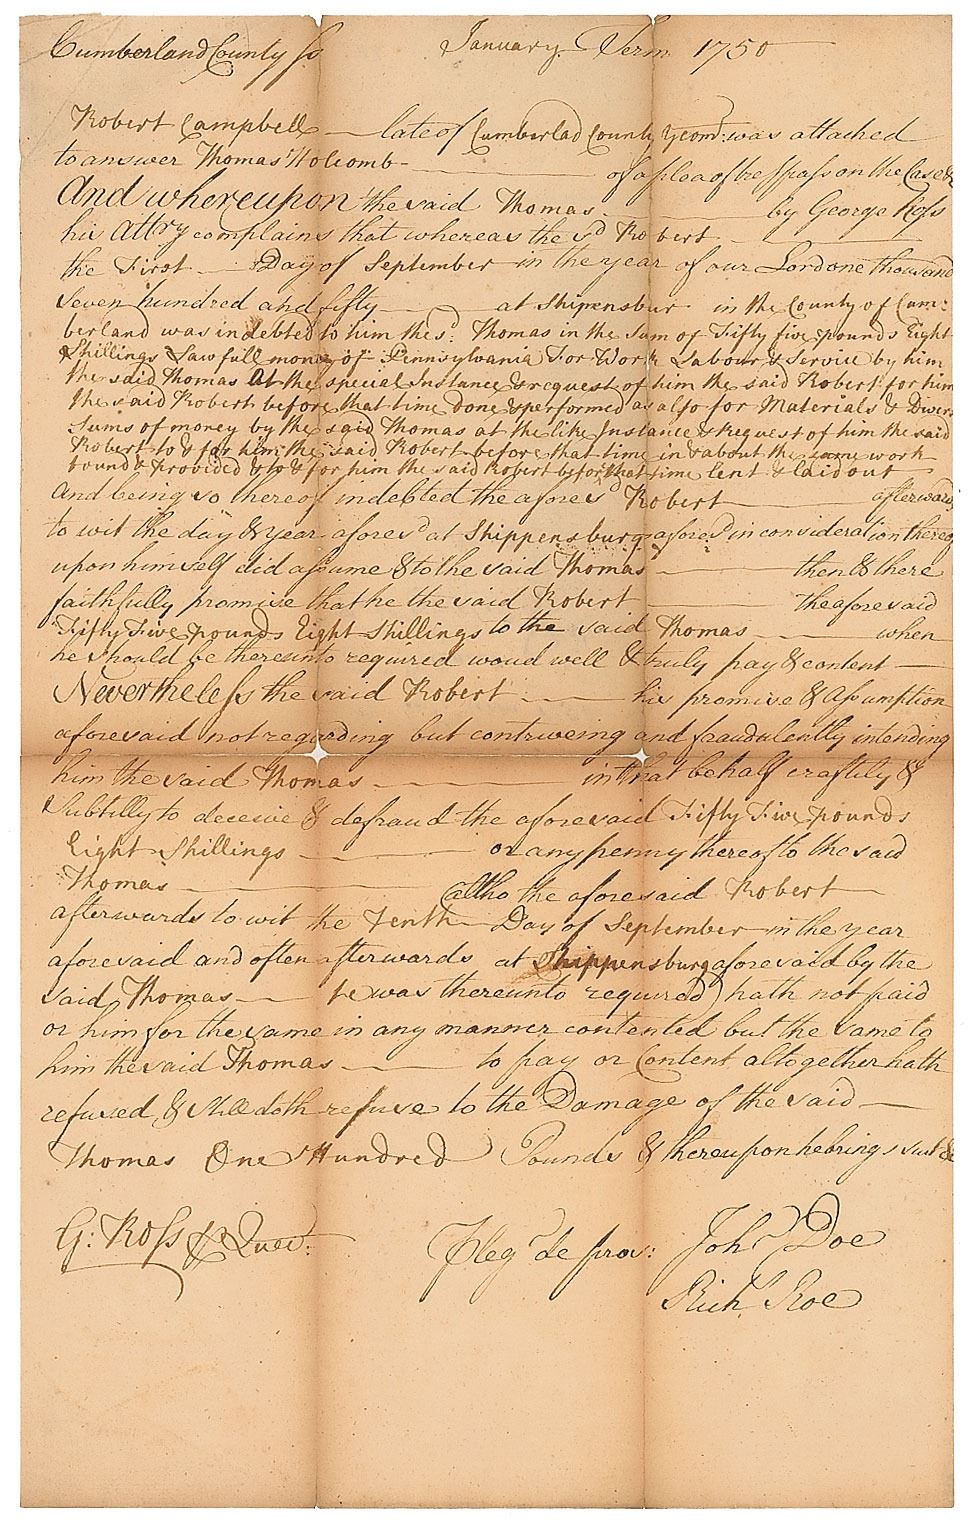 Cumberland County ss January Term 1750
Robert Campbell — late of Cumberlad County Yeom: was attached
to answer Thomas Holcomb — of a plea of trespass on the Case &
And whereupon the said Thomas — by George Ross
his Attry complains that whereas the sd Robert —
the First — Day of September in the year of our Lord one thousand
seven hundred and fifty — at Shipensbur in the County of Cum-
berland was indebted to him the sd. Thomas in the Sum of Fifty five pounds Eight
Shillings Lawfull money of Pennsylvania For Work Labour & Service by him
the said Thomas At the special Instance & request of him the said Robert for him
the said Robert before that time done & performed as also for Materials & Divers
Sums of money by the said Thomas at the like Instance & Request of him the said
Robert to & for him the said Robert before that time in & about the same work
found & provided & to & for him the said Robert before that time lent & laid out
And being so thereof indebted the afores'd Robert — afterwards
to wit the day & year afores'd at Shippensburg afores'd in consideration thereof
upon himself did assume & to the said Thomas — then & there
faithfully promise that he the said Robert — the afore said
Fifty Five pounds Eight Shillings to the said Thomas — when
he should be thereunto required woud well & truly pay & content —
Nevertheless the said Robert — his promise & Assumption
aforesaid not regarding but contriveing and fraudulently intending
him the said Thomas — in that behalf craftily &
Subtilly to deceive & defraud the aforesaid Fifty Five pounds
Eight Shillings — or any penny thereof to the said
Thomas — (altho the aforesaid Robert —
afterwards to wit the Tenth Day of September in the year
aforesaid and often afterwards at Shippensburg aforesaid by the
said Thomas — he was thereunto required) hath not paid
or him for the same in any manner contented but the same to
him the said Thomas — to pay or Content altogether hath
refused & still doth refuse to the Damage of the said —
Thomas One Hundred Pounds & thereupon he brings suit &c
G: Ross p Quer: Pleg de pros: Joh Doe
Rich Roe